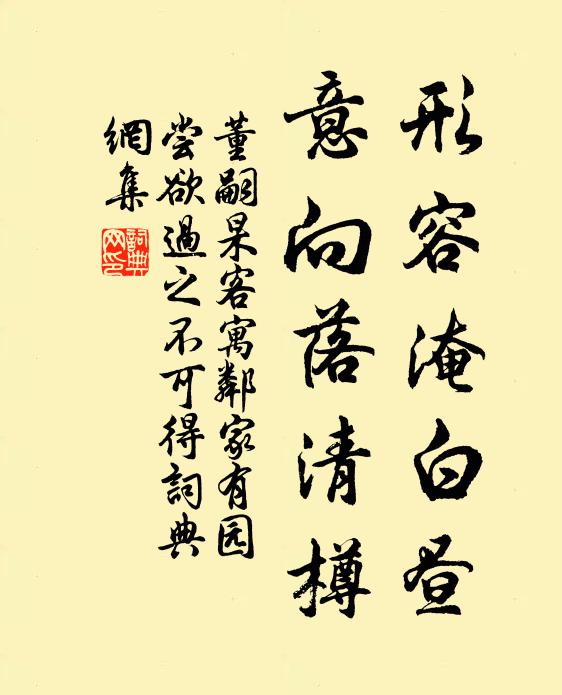 形容淹白昼
意向落清樽
董嗣杲客寓鄰家有园
尝欲過之不可得詞典
網集
詞典
网印